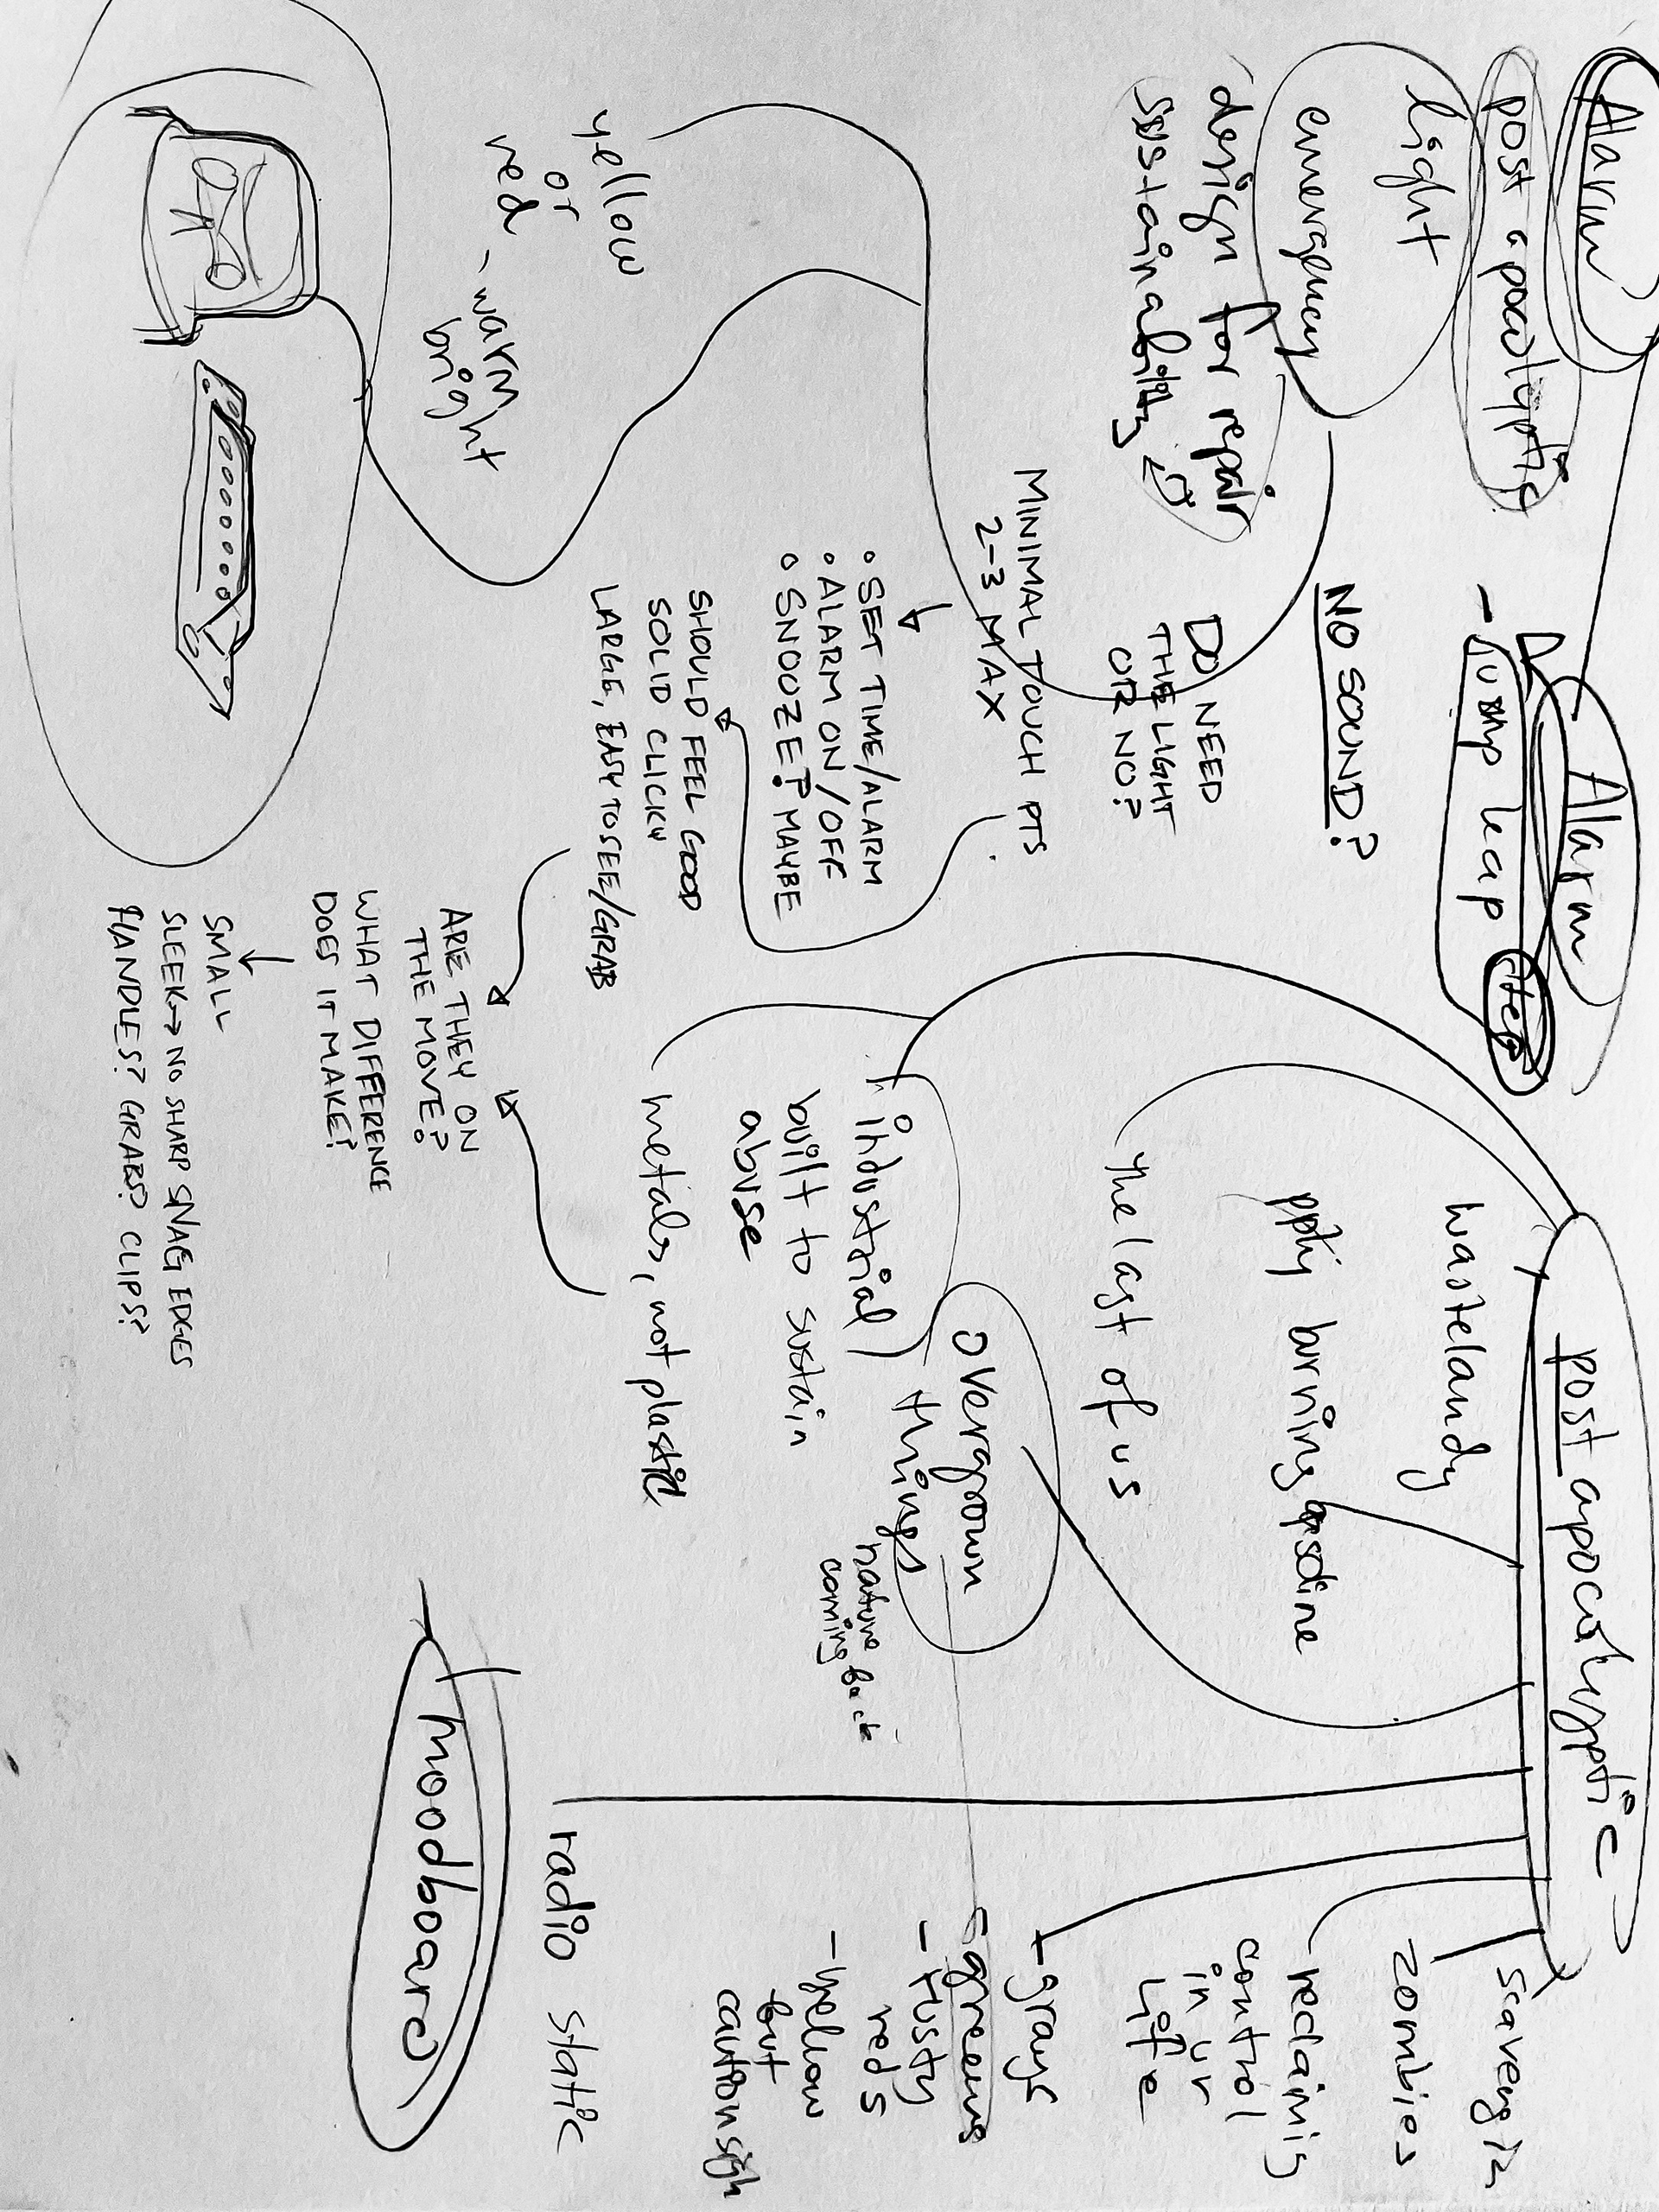 Alarm
post apocolyptic
light
emergency
design for repair
sustainability
Alarm
- Jump leap
step
NO SOUND?
DO NEED
THE LIGHT
OR NO?
MINIMAL TOUCH PTS.
2-3 MAX
• SET TIME/ALARM
• ALARM ON/OFF
• SNOOZE? MAYBE
SHOULD FEEL GOOD
SOLID CLICKY
LARGE, EASY TO SEE/GRAB
yellow
or
red - warm
bright
ARE THEY ON
THE MOVE?
WHAT DIFFERENCE
DOES IT MAKE?
SMALL
SLEEK → NO SHARP SNAG EDGES
HANDLES? GRABS? CLIPS?
post apocalyptic
wastelandy
ppty burning
the last of us
overgrown
things
nature back
coming
industrial
built to sustain
abuse
metals, not plastic
scavengin
zombies
- reclaimig
control
in ur
life
- grays
- greens
- rusty
reds
- yellow
but
caution sigh
radio static
moodboard